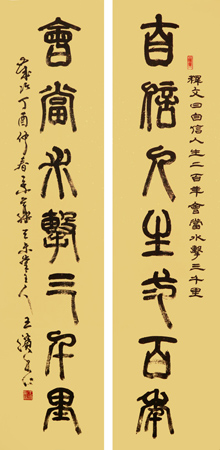 釋文曰自信人生二百年會當水擊三千里
自信人生弍百年
會當水擊三千里
歲次丁酉仲春 主人 王